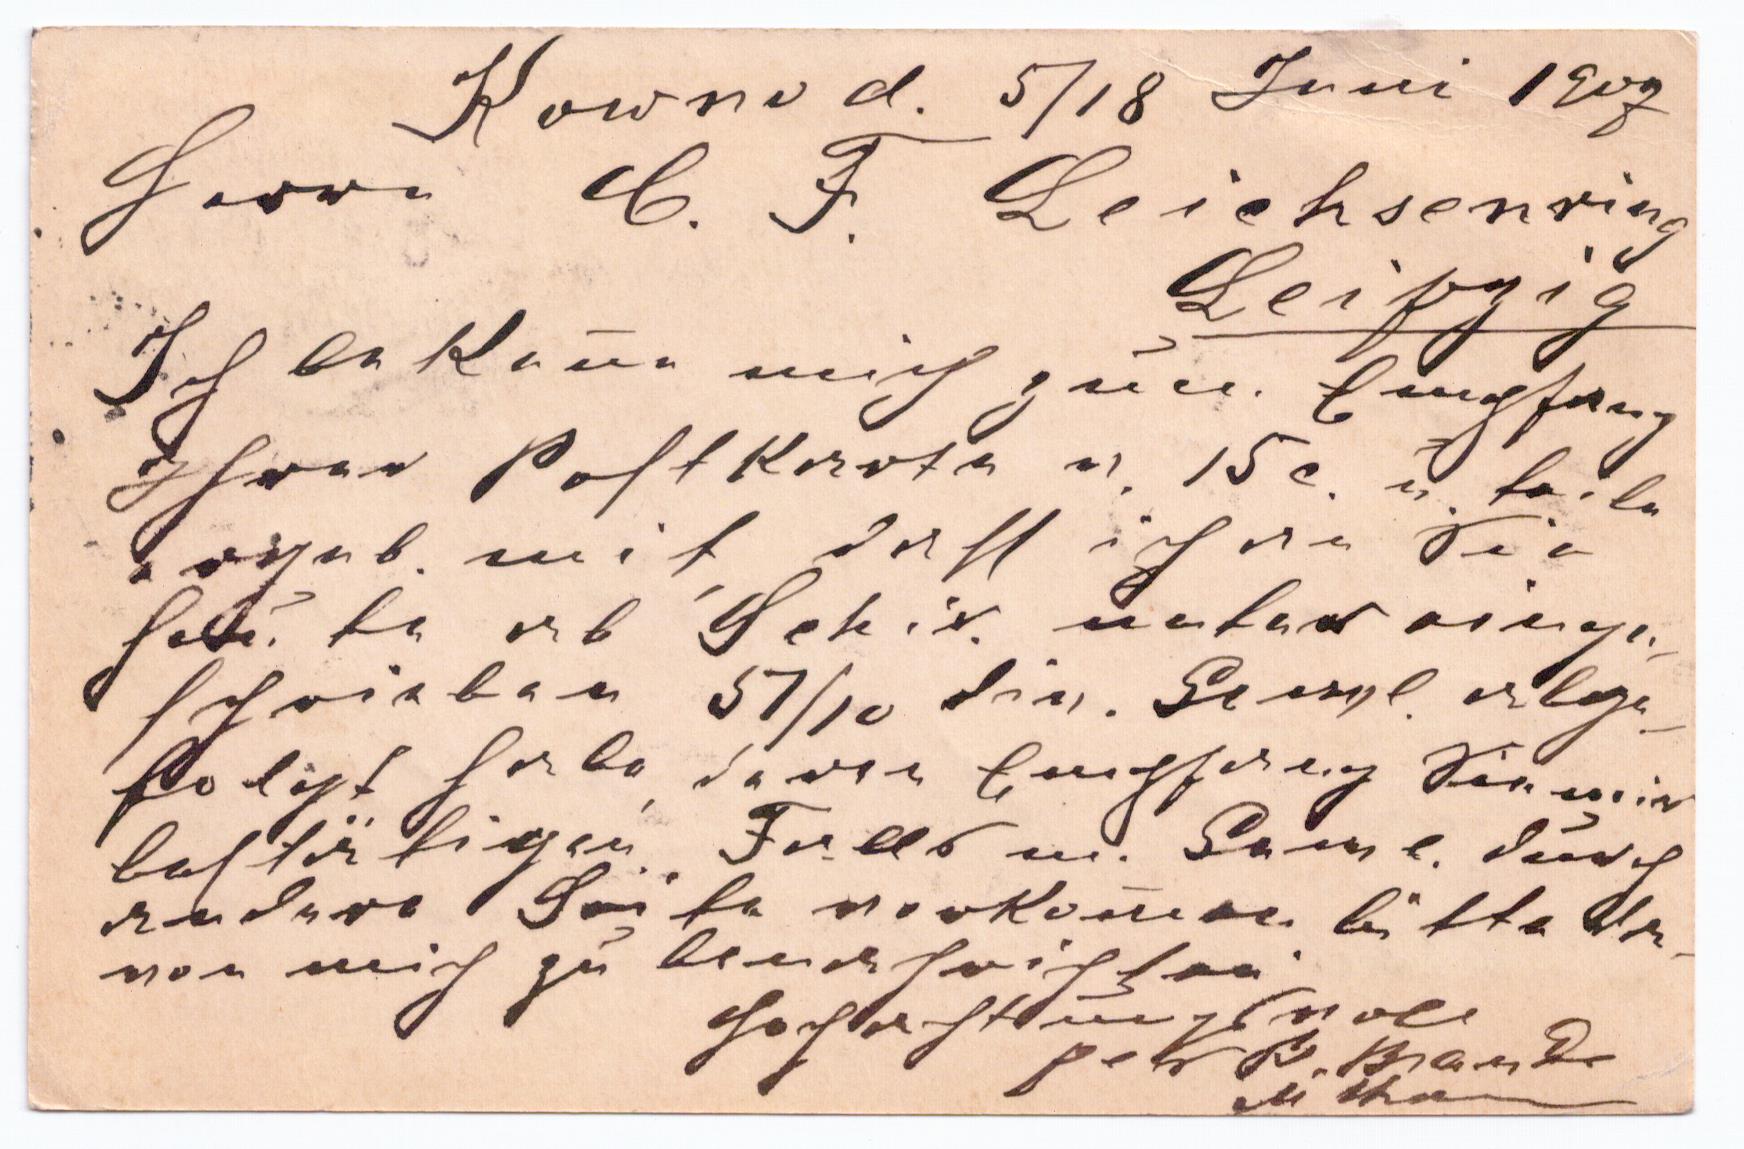 Kowno d. 5/18 Juni 1907
Herrn C. F. Leichsenring
Leipzig
Ich bekenne mich zum Empfang
Ihrer Postkarte v. 15 c. u. teile
ergeb. mit, daß ich an Sie
heute ab Schir. unter einge-
schrieben 57/10 div. Sempl. abge-
folgt habe, deren Empfang Sie mir
bestätigen. Falls m. Sempl. durch
andere Seite vorkommen bitte da-
von mich zu benachrichten
Hochachtungsvoll
per B. Brande